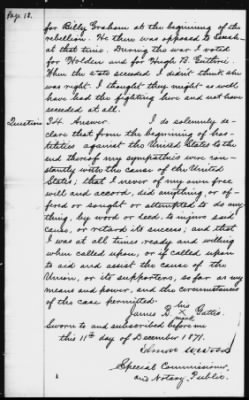 Page. 12.
for Billy Graham at the beginning of the
rebellion. He there was opposed to
at that time. During the war I voted
for Holden and for Hugh B. Guthrie.
When the state seceded I didn't think she
was right. I thought they might as well
have had the fighting here and not have
seceded at all.
Question 34. Answer. I do solemnly de-
clare that from the beginning of hos-
tilities against the United States to the
end thereof my sympathies were con-
stantly with the cause of the United
States; that I never of my own free
will and accord, did anything, or of-
fered or sought or attempted to do any
thing, by word or deed to injure said
cause, or retard its success; and that
I was at all times ready and willing
when called upon, or if called upon
to aid and assist the cause of the
Union, or its supporters, so far as my
means and power, and the circumstances
of the case permitted.
his
James D. X Gates.
mark
Sworn to and subscribed before me
this 11th day of December 1871.
Special Commissioner,
and Notary Public.